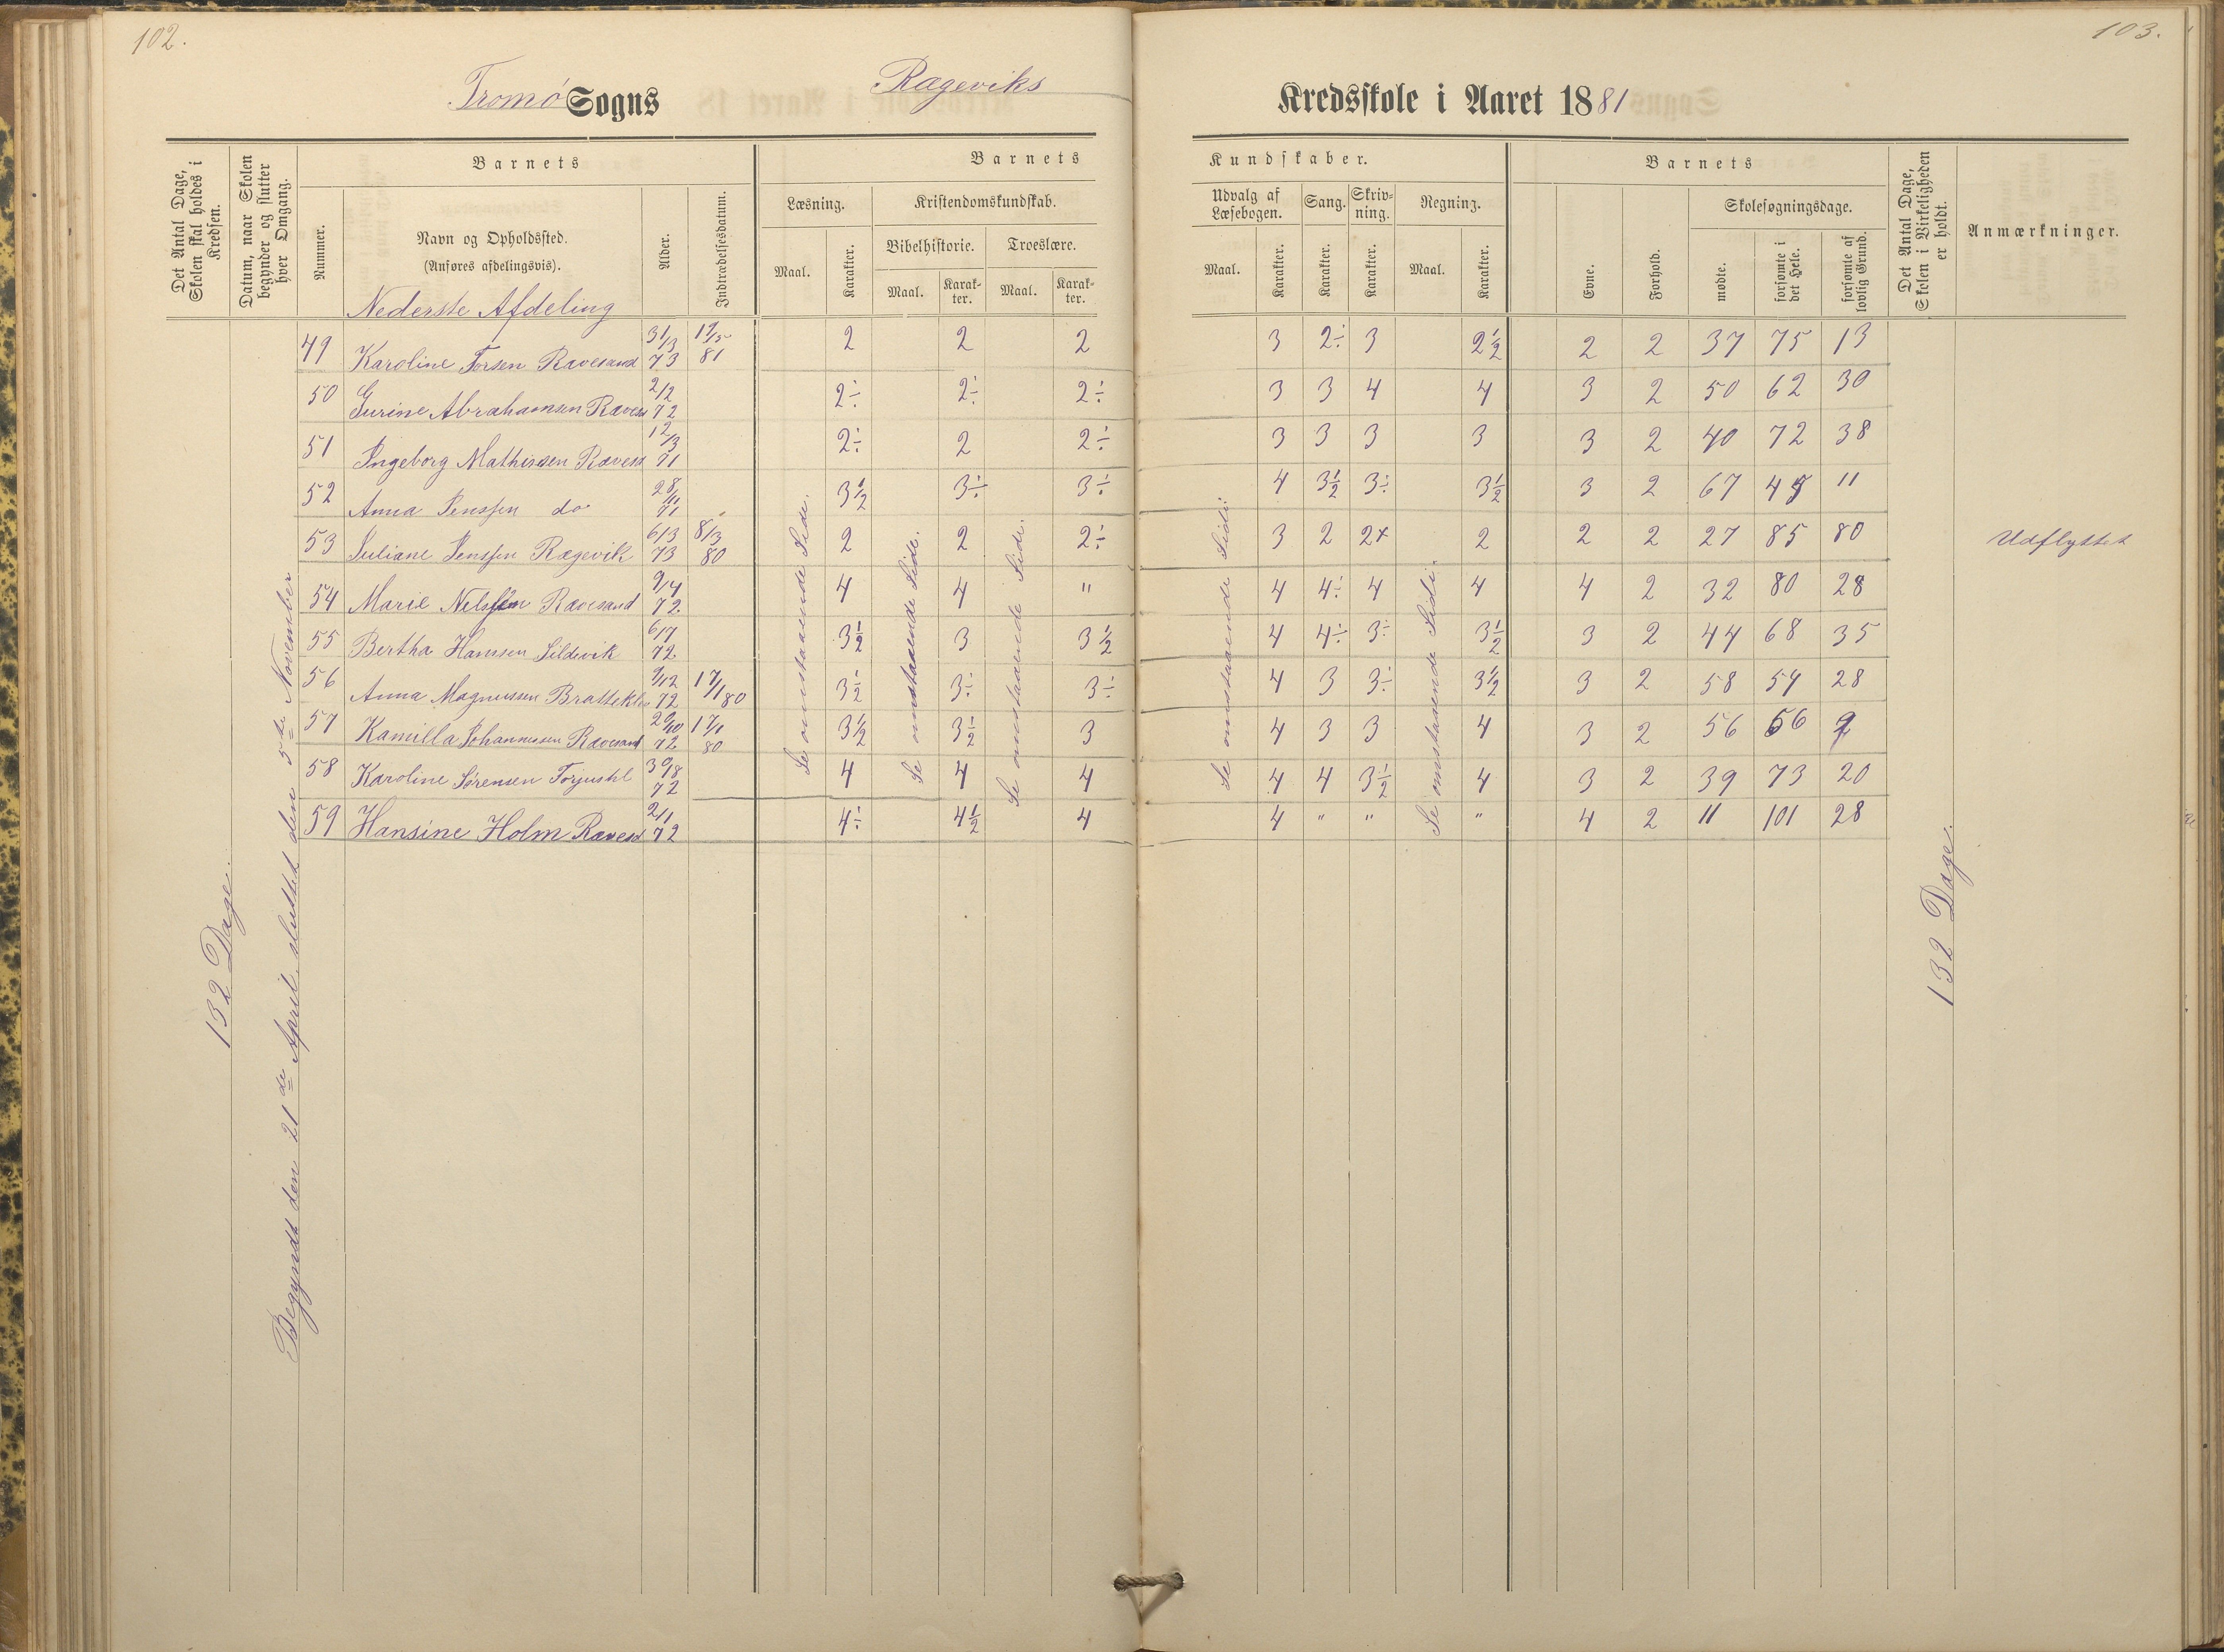 102.
103.
Tromø Sogns Rægeviks Kredsskole i Aaret 1881
Det Antal Dage, Skolen skal holdes i Kredsen.
Datum, naar Skolen begynder og slutter hver Omgang.
Barnets
Nummer.
Navn og Opholdssted.
(Anføres afdelingsvis).
Alder.
Indtrædelsesdatum.
Barnets Kundskaber.
Læsning.
Maal. Karakter.
Kristendomskundskab.
Bibelhistorie. Troeslære.
Maal. Karakter. Maal. Karakter.
Udvalg af Læsebogen.
Maal. Karakter.
Sang. Karakter.
Skrivning. Karakter.
Regning.
Maal. Karakter.
Barnets
Evne. Forhold.
Skolesøgningsdage.
mødte. forsømte i det Hele. forsømte af lovlig Grund.
Det Antal Dage, Skolen i Virkeligheden er holdt.
Anmærkninger.
Nederste Afdeling
49 Karoline Torsen Ravesand 31/3 73 19/5 81 2 2 2 3 2÷ 3 2½ 2 2 37 75 13
50 Gurine Abrahamsen Raves 2/2 72 2÷ 2÷ 2÷ 3 3 4 4 3 2 50 62 30
51 Ingeborg Mathissen Raves 12/3 71 2÷ 2 2÷ 3 3 3 3 3 2 40 72 38
52 Anna Jenssen do 28/11 71 3½ 3÷ 3÷ 4 3½ 3÷ 3½ 3 2 67 45 11
53 Juliane Jenssen Rægevik 6/3 73 8/3 80 2 2 2÷ 3 2 2+ 2 2 2 27 85 80 Udflyttet
54 Marie Nilssen Ravesand 9/4 72 4 4 " 4 4÷ 4 4 4 2 32 80 28
55 Bertha Hanssen Sildevik 6/7 72 3½ 3 3½ 4 4÷ 3÷ 3½ 3 2 44 68 35
56 Anna Magnussen Brattekle 9/12 72 17/1 80 3½ 3÷ 3÷ 4 3 3÷ 3½ 3 2 58 54 28
57 Kamilla Johannessen Ravesand 29/10 72 17/1 80 3½ 3½ 3 4 3 3 4 3 2 56 56 9
58 Karoline Sørensen Torjushl 30/8 72 4 4 4 4 4 3½ 4 3 2 39 73 20
59 Hansine Holm Ravesd 2/1 72 4÷ 4½ 4 4 " " " 4 2 11 101 28
132 Dage.
Begyndt den 21de April, sluttet den 5de November
Se omstaaende Side.
Se omstaaende Side.
Se omstaaende Side.
Se omstaaende Side.
Se omstaaende Side.
132 Dage.